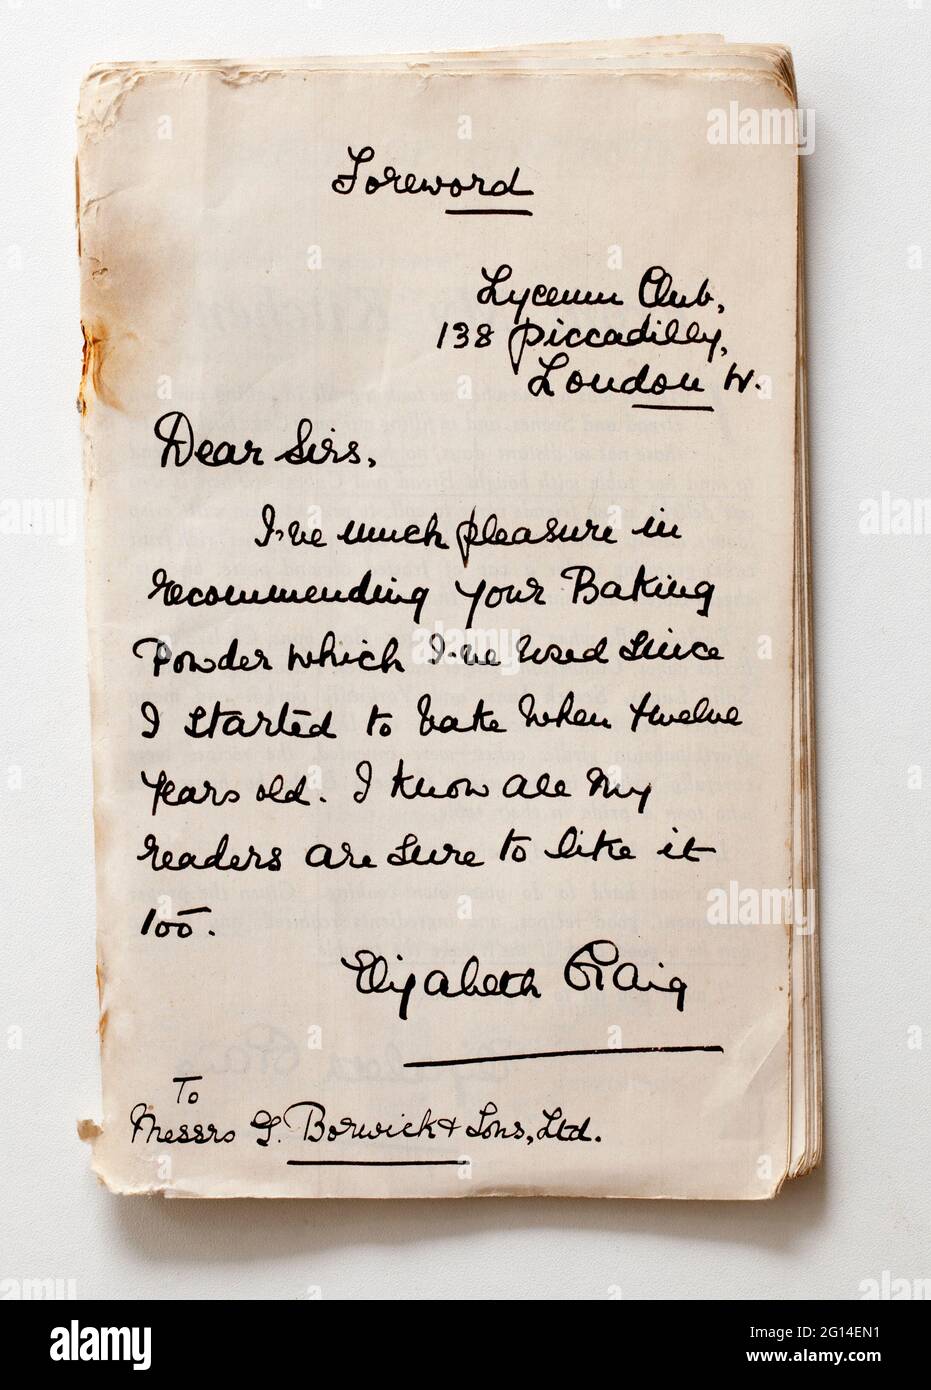 Foreword
Lyceum Club,
138 Piccadilly,
London W.
Dear Sirs,
I've much pleasure in
recommending your Baking
Powder which I've used since
I started to bake when twelve
years old. I know all my
readers are sure to like it
too.
Elizabeth Craig
To
Messrs G. Borwick & Sons, Ltd.
alamy
Image ID: 2G14EN1
www.alamy.com